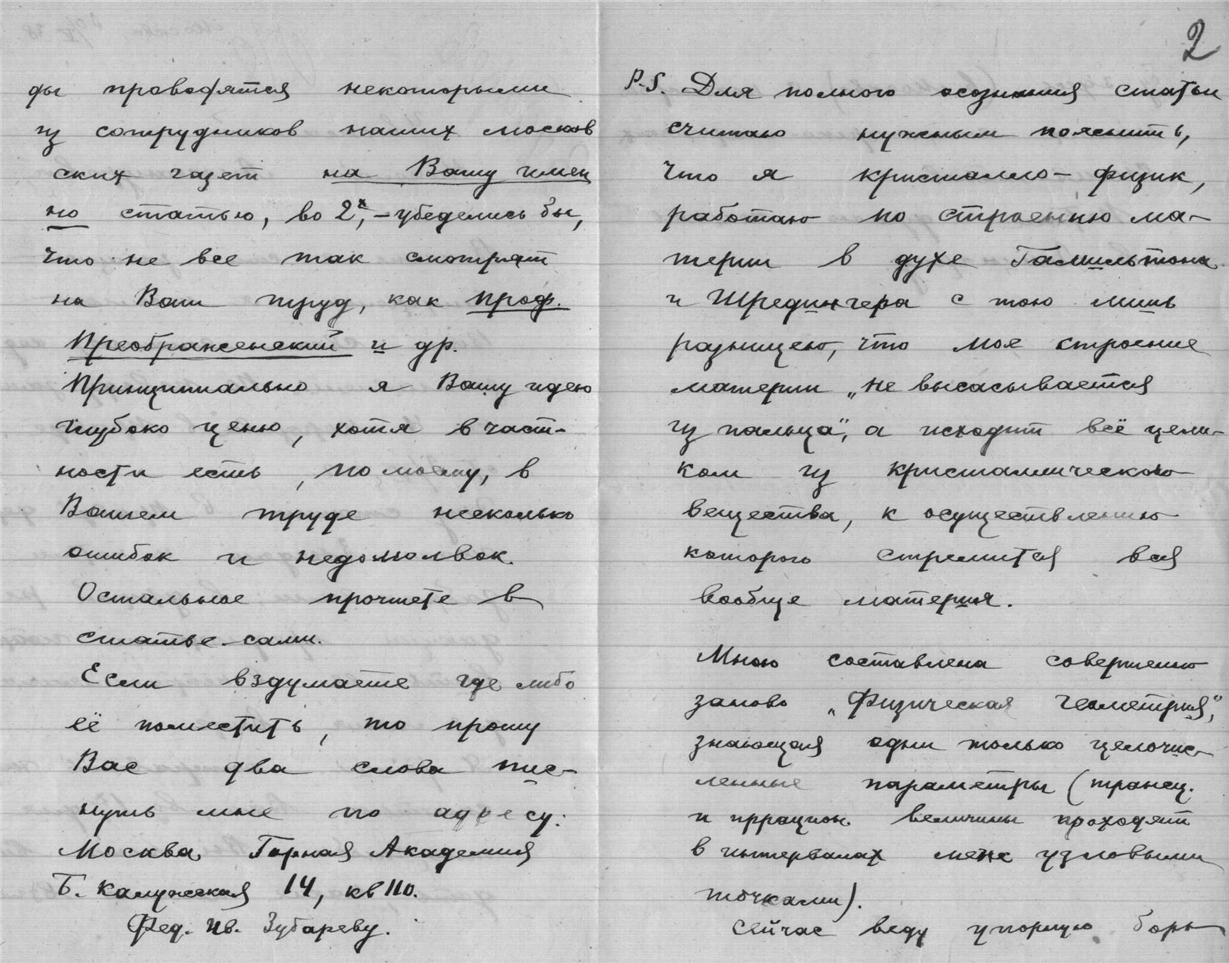 2
ды проводятся некоторыми
из сотрудников наших москов
ских газет на Вашу имен
но статью, во 2х, – убедились бы,
что не все так смотрят
на Ваш труд, как проф.
Преображенский и др.
Принципиально я Вашу идею
глубоко ценю, хотя в част-
ности есть, по моему, в
Вашем труде несколько
ошибок и недомолвок.
Остальное прочтете в
статье сами.
Если вздумаете где либо
её поместить, то прошу
Вас два слова пис-
нуть мне по адресу:
Москва Горная Академия
Б. Калужская 14, кв 110.
Фед. Ив. Зубареву.
P.S. Для полного осознания статьи
считаю нужным пояснить,
что я кристалло-физик,
работаю по строению ма-
терии в духе Гамильтона
и Шредингера с тою лишь
разницею, что мое строение
материи „не высасывается
из пальца", а исходит всё цели-
ком из кристаллического
вещества, к осуществлению
которого стремится вся
вообще материя.
Мною составлена совершенно
заново „Физическая геометрия",
знающая одни только целочис-
ленные параметры (трансц.
и иррацион. величины проходят
в интервалах меж узловыми
точками).
Сейчас веду упорную борь